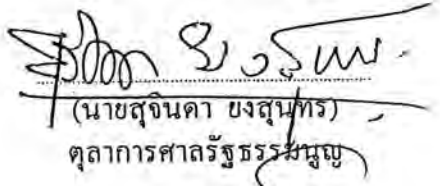 (นายสุจินดา ยงสุนทร)
ตุลาการศาลรัฐธรรมนูญ